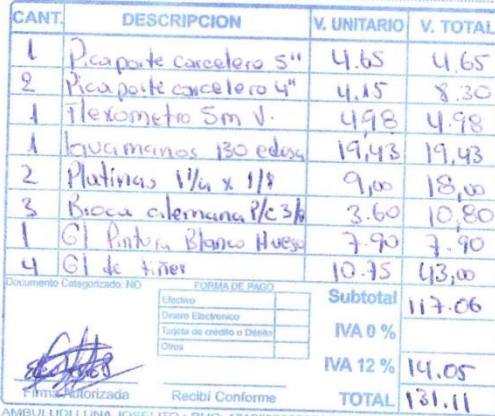 CANT. DESCRIPCION V. UNITARIO V. TOTAL
1 Picaporte carcelero 5" 4.65 4.65
2 Picaporte carcelero 4" 4.15 8.30
1 Flexometro 5m V. 4.98 4.98
1 130 19,43 19,43
2 Platinas 1 1/4 x 1/8 9,00 18,00
3 Broca alemana P/c 3/8 3.60 10,80
1 Gl Pintura Blanco Hueso 7.90 7.90
4 Gl de tiñer 10.75 43,00
Documento Categorizado: NO FORMA DE PAGO Subtotal 117.06
Efectivo
Dinero Electronico
Tarjeta de crédito o Débito IVA 0 %
Otros
IVA 12 % 14.05
Firma Autorizada Recibí Conforme TOTAL 131.11
AMBULUDI LUNA JOSELITO - RUC: